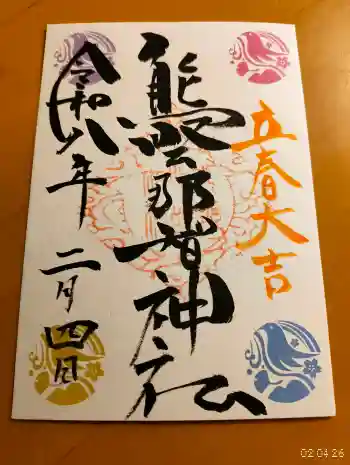 立春大吉
熊野那智神社
令和八年
二月四日
02 04 26